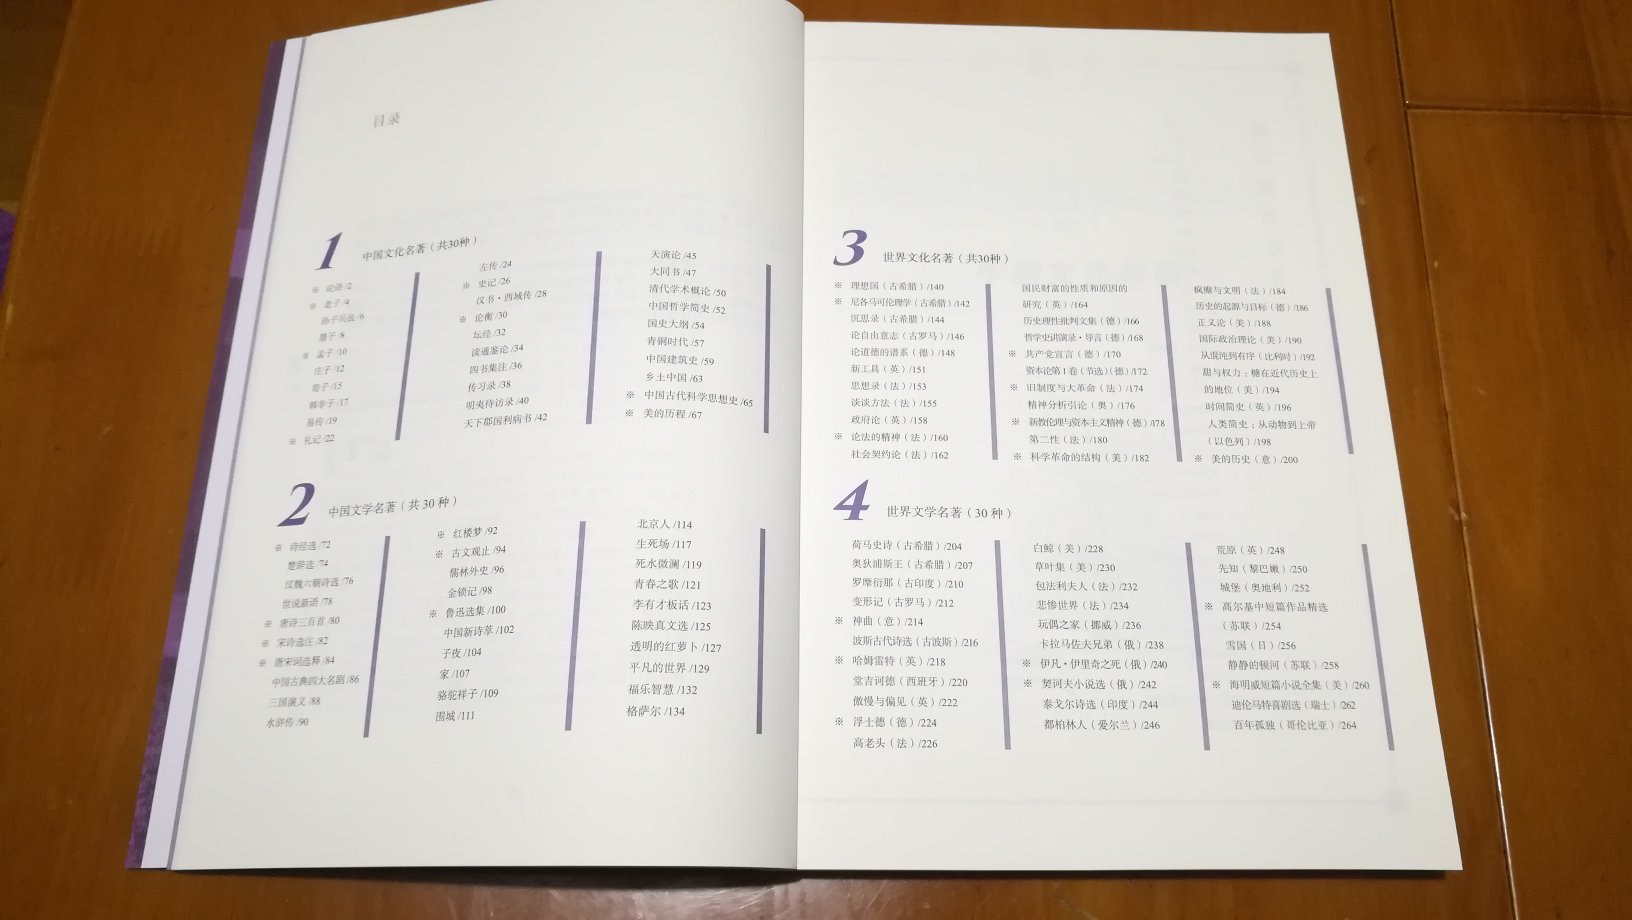 目录
1 中国文化名著（共30种）
※ 论语 /2
※ 老子 /4
孙子兵法 /6
墨子 /8
※ 孟子 /10
庄子 /12
荀子 /15
韩非子 /17
易传 /19
※ 礼记 /22
左传 /24
※ 史记 /26
汉书·西域传 /28
※ 论衡 /30
坛经 /32
读通鉴论 /34
四书集注 /36
传习录 /38
明夷待访录 /40
天下郡国利病书 /42
天演论 /45
大同书 /47
清代学术概论 /50
中国哲学简史 /52
国史大纲 /54
青铜时代 /57
中国建筑史 /59
乡土中国 /63
※ 中国古代科学思想史 /65
※ 美的历程 /67
2 中国文学名著（共 30 种）
※ 诗经选 /72
楚辞选 /74
汉魏六朝诗选 /76
世说新语 /78
※ 唐诗三百首 /80
※ 宋诗选注 /82
※ 唐宋词选释 /84
中国古典四大名剧 /86
三国演义 /88
水浒传 /90
※ 红楼梦 /92
※ 古文观止 /94
儒林外史 /96
金锁记 /98
※ 鲁迅选集 /100
中国新诗萃 /102
子夜 /104
家 /107
骆驼祥子 /109
围城 /111
北京人 /114
生死场 /117
死水微澜 /119
青春之歌 /121
李有才板话 /123
陈映真文选 /125
透明的红萝卜 /127
平凡的世界 /129
福乐智慧 /132
格萨尔 /134
3 世界文化名著（共30种）
※ 理想国（古希腊）/140
※ 尼各马可伦理学（古希腊）/142
沉思录（古希腊）/144
论自由意志（古罗马）/146
论道德的谱系（德）/148
新工具（英）/151
思想录（法）/153
谈谈方法（法）/155
政府论（英）/158
※ 论法的精神（法）/160
社会契约论（法）/162
国民财富的性质和原因的
研究（英）/164
历史理性批判文集（德）/166
哲学史讲演录·导言（德）/168
※ 共产党宣言（德）/170
资本论第1卷（节选）（德）/172
※ 旧制度与大革命（法）/174
精神分析引论（奥）/176
※ 新教伦理与资本主义精神（德）/178
第二性（法）/180
※ 科学革命的结构（美）/182
疯癫与文明（法）/184
历史的起源与目标（德）/186
正义论（美）/188
国际政治理论（美）/190
从混沌到有序（比利时）/192
甜与权力：糖在近代历史上
的地位（美）/194
时间简史（英）/196
人类简史：从动物到上帝
（以色列）/198
※ 美的历史（意）/200
4 世界文学名著（30 种）
荷马史诗（古希腊）/204
奥狄浦斯王（古希腊）/207
罗摩衍那（古印度）/210
变形记（古罗马）/212
※ 神曲（意）/214
波斯古代诗选（古波斯）/216
※ 哈姆雷特（英）/218
堂吉诃德（西班牙）/220
傲慢与偏见（英）/222
※ 浮士德（德）/224
高老头（法）/226
白鲸（美）/228
草叶集（美）/230
包法利夫人（法）/232
悲惨世界（法）/234
玩偶之家（挪威）/236
卡拉马佐夫兄弟（俄）/238
※ 伊凡·伊里奇之死（俄）/240
※ 契诃夫小说选（俄）/242
泰戈尔诗选（印度）/244
都柏林人（爱尔兰）/246
荒原（英）/248
先知（黎巴嫩）/250
城堡（奥地利）/252
※ 高尔基中短篇作品精选
（苏联）/254
雪国（日）/256
静静的顿河（苏联）/258
※ 海明威短篇小说全集（美）/260
迪伦马特喜剧选（瑞士）/262
百年孤独（哥伦比亚）/264